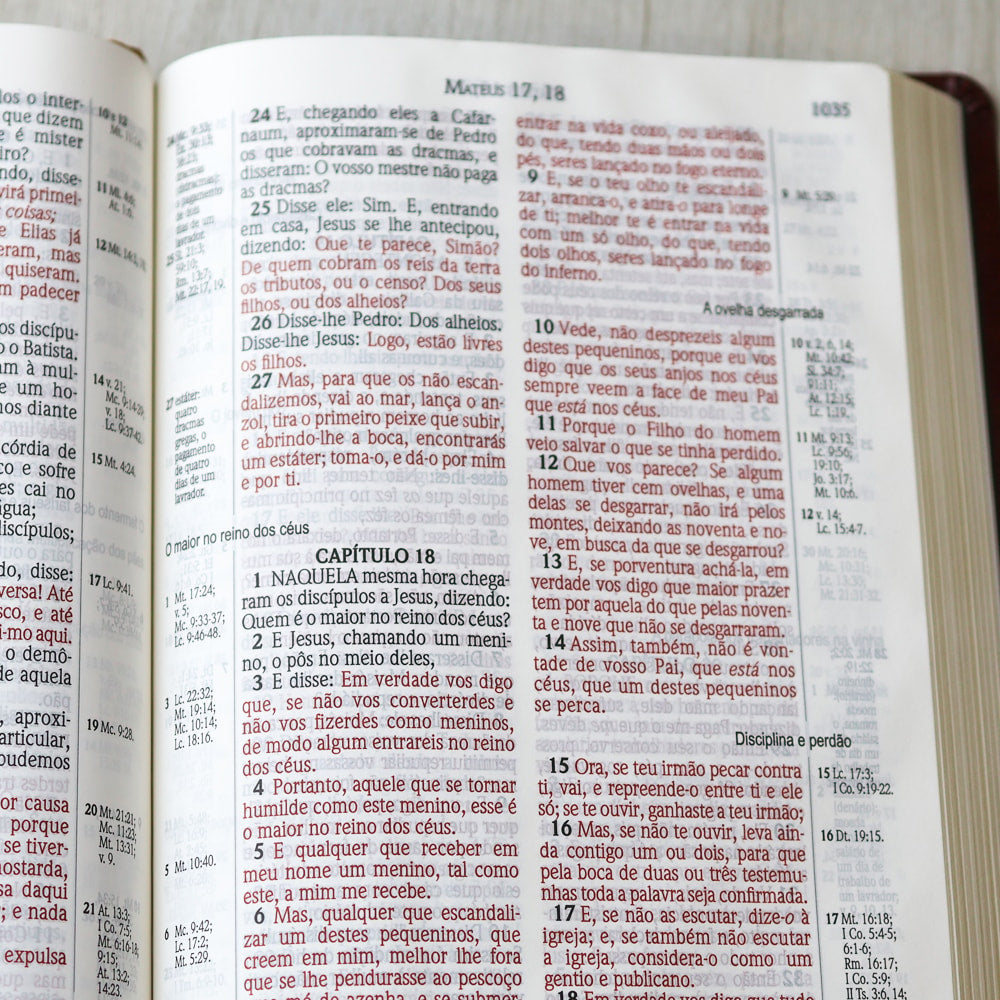 los o inter-
que dizem
e é mister
iro?
ndo, disse-
virá primei-
coisas;
e Elias já
eram, mas
quiseram.
m padecer
os discípu-
o Batista.
am à mul-
e um ho-
nos diante
córdia de
co e sofre
es cai no
água;
discípulos;
do, disse:
versa! Até
sco, e até
i-mo aqui.
o demô-
de aquela
, aproxi-
articular,
pudemos
or causa
porque
se tiver-
nostarda,
sa daqui
; e nada
expulsa
11 Ml. 4:6;
At. 1:6.
14 v. 21;
Mc. 9:14-29;
v. 18;
Lc. 9:37-42.
15 Mt. 4:24.
17 Lc. 9:41.
19 Mc. 9:28.
20 Mt. 21:21;
Mc. 11:23;
Mt. 13:31;
v. 9.
21 At. 13:3;
I Co. 7:5;
Mt. 6:16-18;
9:15;
At. 13:2;
14:23.
MATEUS 17, 18
1035
24 E, chegando eles a Cafar-
naum, aproximaram-se de Pedro
os que cobravam as dracmas, e
disseram: O vosso mestre não paga
as dracmas?
25 Disse ele: Sim. E, entrando
em casa, Jesus se lhe antecipou,
dizendo: Que te parece, Simão?
De quem cobram os reis da terra
os tributos, ou o censo? Dos seus
filhos, ou dos alheios?
26 Disse-lhe Pedro: Dos alheios.
Disse-lhe Jesus: Logo, estão livres
os filhos.
27 Mas, para que os não escan-
dalizemos, vai ao mar, lança o an-
zol, tira o primeiro peixe que subir,
e abrindo-lhe a boca, encontrarás
um estáter; toma-o, e dá-o por mim
e por ti.
27 estáter:
quatro
dracmas
gregas, o
pagamento
de quatro
dias de um
lavrador.
O maior no reino dos céus
CAPÍTULO 18
1 NAQUELA mesma hora chega-
ram os discípulos a Jesus, dizendo:
Quem é o maior no reino dos céus?
2 E Jesus, chamando um meni-
no, o pôs no meio deles,
3 E disse: Em verdade vos digo
que, se não vos converterdes e
não vos fizerdes como meninos,
de modo algum entrareis no reino
dos céus.
4 Portanto, aquele que se tornar
humilde como este menino, esse é
o maior no reino dos céus.
5 E qualquer que receber em
meu nome um menino, tal como
este, a mim me recebe.
6 Mas, qualquer que escandali-
zar um destes pequeninos, que
creem em mim, melhor lhe fora
que se lhe pendurasse ao pescoço
uma mó de azenha, e se submer-
1 Mt. 17:24;
v. 5;
Mc. 9:33-37;
Lc. 9:46-48.
3 Lc. 22:32;
Mt. 19:14;
Mc. 10:14;
Lc. 18:16.
5 Mt. 10:40.
6 Mc. 9:42;
Lc. 17:2;
Mt. 5:29.
entrar na vida coxo, ou aleijado,
do que, tendo duas mãos ou dois
pés, seres lançado no fogo eterno.
9 E, se o teu olho te escandali-
zar, arranca-o, e atira-o para longe
de ti; melhor te é entrar na vida
com um só olho, do que, tendo
dois olhos, seres lançado no fogo
do inferno.
A ovelha desgarrada
10 Vede, não desprezeis algum
destes pequeninos, porque eu vos
digo que os seus anjos nos céus
sempre veem a face de meu Pai
que está nos céus.
11 Porque o Filho do homem
veio salvar o que se tinha perdido.
12 Que vos parece? Se algum
homem tiver cem ovelhas, e uma
delas se desgarrar, não irá pelos
montes, deixando as noventa e no-
ve, em busca da que se desgarrou?
13 E, se porventura achá-la, em
verdade vos digo que maior prazer
tem por aquela do que pelas noven-
ta e nove que não se desgarraram.
14 Assim, também, não é von-
tade de vosso Pai, que está nos
céus, que um destes pequeninos
se perca.
Disciplina e perdão
15 Ora, se teu irmão pecar contra
ti, vai, e repreende-o entre ti e ele
só; se te ouvir, ganhaste a teu irmão;
16 Mas, se não te ouvir, leva ain-
da contigo um ou dois, para que
pela boca de duas ou três testemu-
nhas toda a palavra seja confirmada.
17 E, se não as escutar, dize-o à
igreja; e, se também não escutar
a igreja, considera-o como um
gentio e publicano.
18 Em verdade vos digo que tudo
9 Mt. 5:29.
10 v. 2, 6, 14;
Mt. 10:42;
Sl. 34:7;
91:11;
At. 12:15;
Lc. 1:19.
11 Mt. 9:13;
Lc. 9:56;
19:10;
Jo. 3:17;
Mt. 10:6.
12 v. 14;
Lc. 15:4-7.
15 Lc. 17:3;
I Co. 9:19-22.
16 Dt. 19:15.
17 Mt. 16:18;
I Co. 5:4-5;
6:1-6;
Rm. 16:17;
I Co. 5:9;
II Ts. 3:6, 14;